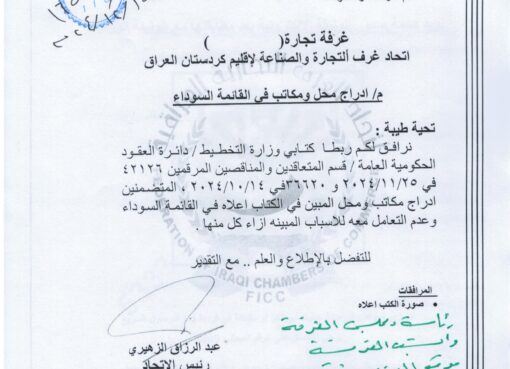 غرفة تجارة ( )
اتحاد غرف ألتجارة والصناعة لإقليم كردستان العراق
م/ ادراج محل ومكاتب في القائمة السوداء
تحية طيبة :
نرافق لكم ربطا كتابي وزارة التخطيط / دائرة العقود
الحكومية العامة / قسم المتعاقدين والمناقصين المرقمين ٤٢١٢٦
في ٢٠٢٤/١١/٢٥ و ٣٦٦٢٠ في ٢٠٢٤/١٠/١٤ ، المتضمنين
ادراج مكاتب ومحل المبين في الكتاب اعلاه في القائمة السوداء
وعدم التعامل معه للاسباب المبينه ازاء كل منها .
للتفضل بالإطلاع والعلم .. مع التقدير
IRAQI CHAMBERS
FICC
المرافقات
• صورة الكتب اعلاه
عبد الرزاق الزهيري
رئيس الاتحاد